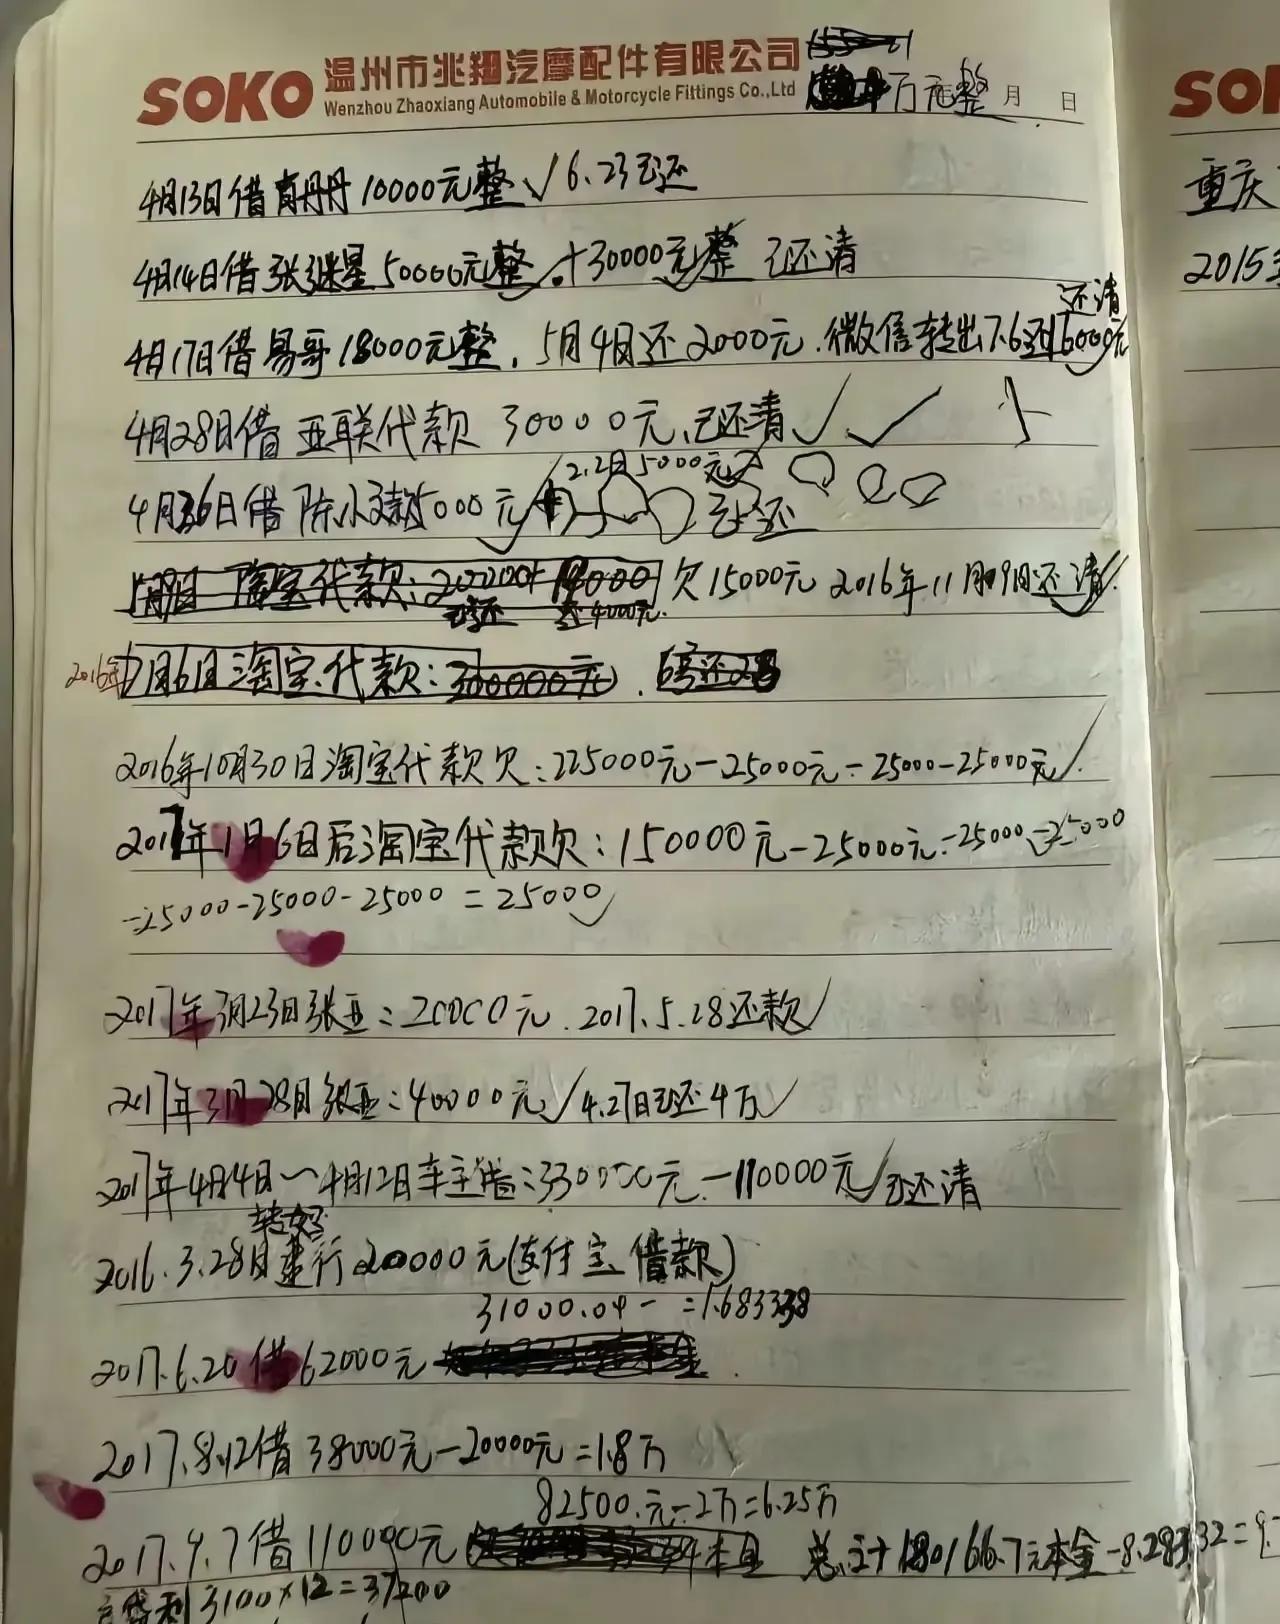 SOKO 温州市兆翔汽摩配件有限公司
Wenzhou Zhaoxiang Automobile & Motorcycle Fittings Co.,Ltd
万元整 月 日
SOK
4月13日借肖丹丹10000元整√6.23已还
4月14日借张继星50000元整.+30000元整 已还清
还清
4月17日借易哥18000元整,5月4日还2000元.微信转出7.6还16000元
4月28日借亚联代款30000元,已还清√√
2.2日5000元
4月 日借陈小 5000元 已还
淘宝代款:20000+ 欠15000元 2016年11月19日还清
已还 还4000元.
2016年7月6日淘宝代款:300000元.
2016年10月30日淘宝代款欠:225000元-25000元-25000-25000元√
2017年1月6日后淘宝代款欠:150000元-25000元-25000-25000
-25000-25000-25000=25000√
2017年3月23日张亚:20000元.2017.5.28还款√
2017年3月28日张亚:40000元√4.27日已还4万√
2017年4月4日~4月12日车主借:330000元-110000元√已还清
2016.3.28日建行20000元(支付宝借款)
31000.04- =1.683338
2017.6.20借62000元
2017.8.12借38000元-20000元=1.8万
82500.元-2万=6.25万
2017.9.7借110000元 本息 总计180166.7元本金-8.28332=9.
3100×12=37200
重庆
2015